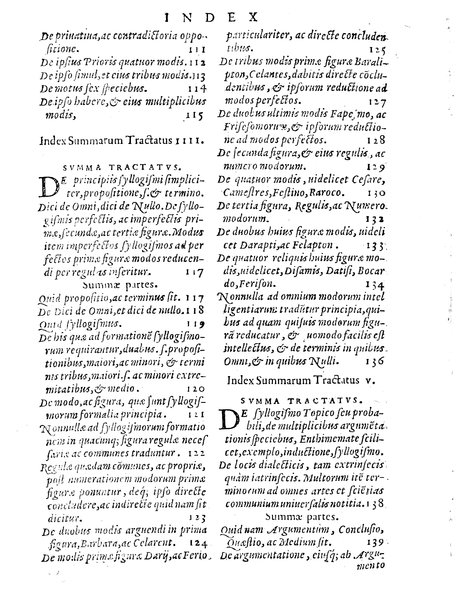 INDEX
De priuatiua, ac contradictoria oppo-
sitione. 111
De ipsius Prioris quatuor modis. 112
De ipso simul, et eius tribus modis. 113
De motus sex speciebus. 114
De ipso habere, & eius multiplicibus
modis, 115
Index Summarum Tractatus IIII.
SVMMA TRACTATVS.
DE principiis syllogismi simplici-
ter, propositione, s. & termino.
Dici de Omni, dici de Nullo. De syllo-
gismis perfectis, ac imperfectis pri-
mæ, secundæ, ac tertiæ figuræ. Modus
item imperfectos syllogismos ad per
fectos primæ figuræ modos reducen-
di per regulas inseritur. 117
Summæ partes.
Quid propositio, ac terminus sit. 117
De Dici de Omni, et dici de nullo. 118
Quid syllogismus. 119
De his quæ ad formationē syllogismo-
rum requirantur, duabus. s. proposi-
tionibus, maiori, ac minori, & termi-
nis tribus, maiori. s. ac minori extre-
mitatibus, & medio. 120
De modo, ac figura, quæ sunt syllogis-
morum formalia principia. 121
Nonnullæ ad syllogismorum formatio
nem in quacunq; figura regulæ neces
sariæ ac communes traduntur. 122
Regulæ quædam cōmunes, ac propriæ,
post numerationem modorum primæ
figuræ ponuntur, deq; ipso directe
concludere, ac indirecte quid nam sit
dicitur. 123
De duobus modis arguendi in prima
figura, Barbara, ac Celarent. 124
De modis primæ figuræ Darij, ac Ferio
particulariter, ac directe concluden-
tibus. 125
De tribus modis primæ figuræ Barali-
pton, Celantes, dabitis directe cōclu-
dentibus, & ipsorum reductione ad
modos perfectos. 127
De duobus ultimis modis Fapesmo, ac
Frisesomorum, & ipsorum reductio-
ne ad modos perfectos. 128
De secunda figura, & eius regulis, ac
numero modorum. 129
De quatuor modis, uidelicet Cesare,
Camestres, Festino, Baroco. 130
De tertia figura, Regulis, ac Numero
modorum. 132
De duobus huius figuræ modis, uideli
cet Darapti, ac Felapton. 133
De quatuor reliquis huius figuræ mo-
dis, uidelicet, Disamis, Datisi, Bocar
do, Ferison. 134
Nonnulla ad omnium modorum intel
ligentiarum traditur principia, qui-
bus ad quam quisuis modorum figu-
rā reducatur, & quomodo facilis est
intellectus, & de terminis in quibus
Omni, & in quibus Nulli. 136
Index Summarum Tractatus v.
SVMMA TRACTATVS.
DE syllogismo Topico seu proba-
bili, de multiplicibus argumēta
tionis speciebus, Enthimemate scili-
cet, exemplo, inductione, syllogismo.
De locis dialecticis, tam extrinsecis
quàm ītrinsecis. Multorum itē ter-
minorum ad omnes artes et sciētias
communium uniuersalis notitia. 138
Summæ partes.
Quid nam Argumentum, Conclusio,
Quæstio, ac Medium sit. 139
De argumentatione, eiusq; ab Argu-
mento